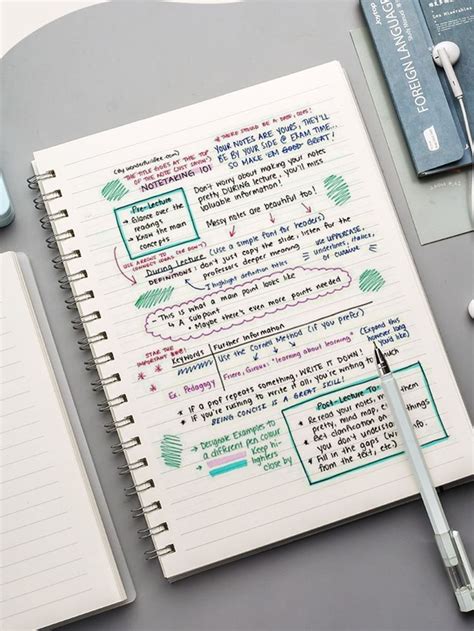 (By wonderfulidee.com)
* THERE SHOULD BE A DATE, OOPS!
"THE TITLE GOES AT THE TOP
OF THE NOTE (JUST SAYIN')
NOTETAKING 101
YOUR NOTES ARE YOURS, THEY'LL
BE BY YOUR SIDE @ EXAM TIME...
SO MAKE 'EM GOOD GREAT!
Don't worry about making your notes
pretty DURING lecture, you'll miss
valuable information!
Messy notes are beautiful too!
Pre-Lecture
* Glance over the
readings
* Know the main
concepts
USE ARROWS TO
CONNECT IDEAS (OR DON'T)
During Lecture (Use a simple font for headers)
DEFINITIONS : don't just copy the slide, listen for the
professors deeper meaning
I highlight definition titles
USE UPPERCASE,
underlines, italics,
or cursive
• This is what a main point looks like
↳ A subpoint
• Maybe there's even more points needed
STAR THE
IMPORTANT BBG!
Keywords | Further Information
Use the Cornell Method (if you prefer)
(Expand this
however long
you'd like)
Ex. Pedagogy
Freire, Giroux: "Learning about learning"
* If a prof repeats something, WRITE IT DOWN!
* If you're rushing to write it all, you're writing too much
BEING CONCISE IS A GREAT SKILL!
→ Designate Examples to
a different pen colour
→ Keep hi-
lighters
close by
Post-Lecture To
* Read your notes, them
pretty, mind map, things
* Get clarification on
you don't understand
* Fill in the gaps (w/ info
from the text, etc)
FOREIGN LANGUAGE
Les Misérables